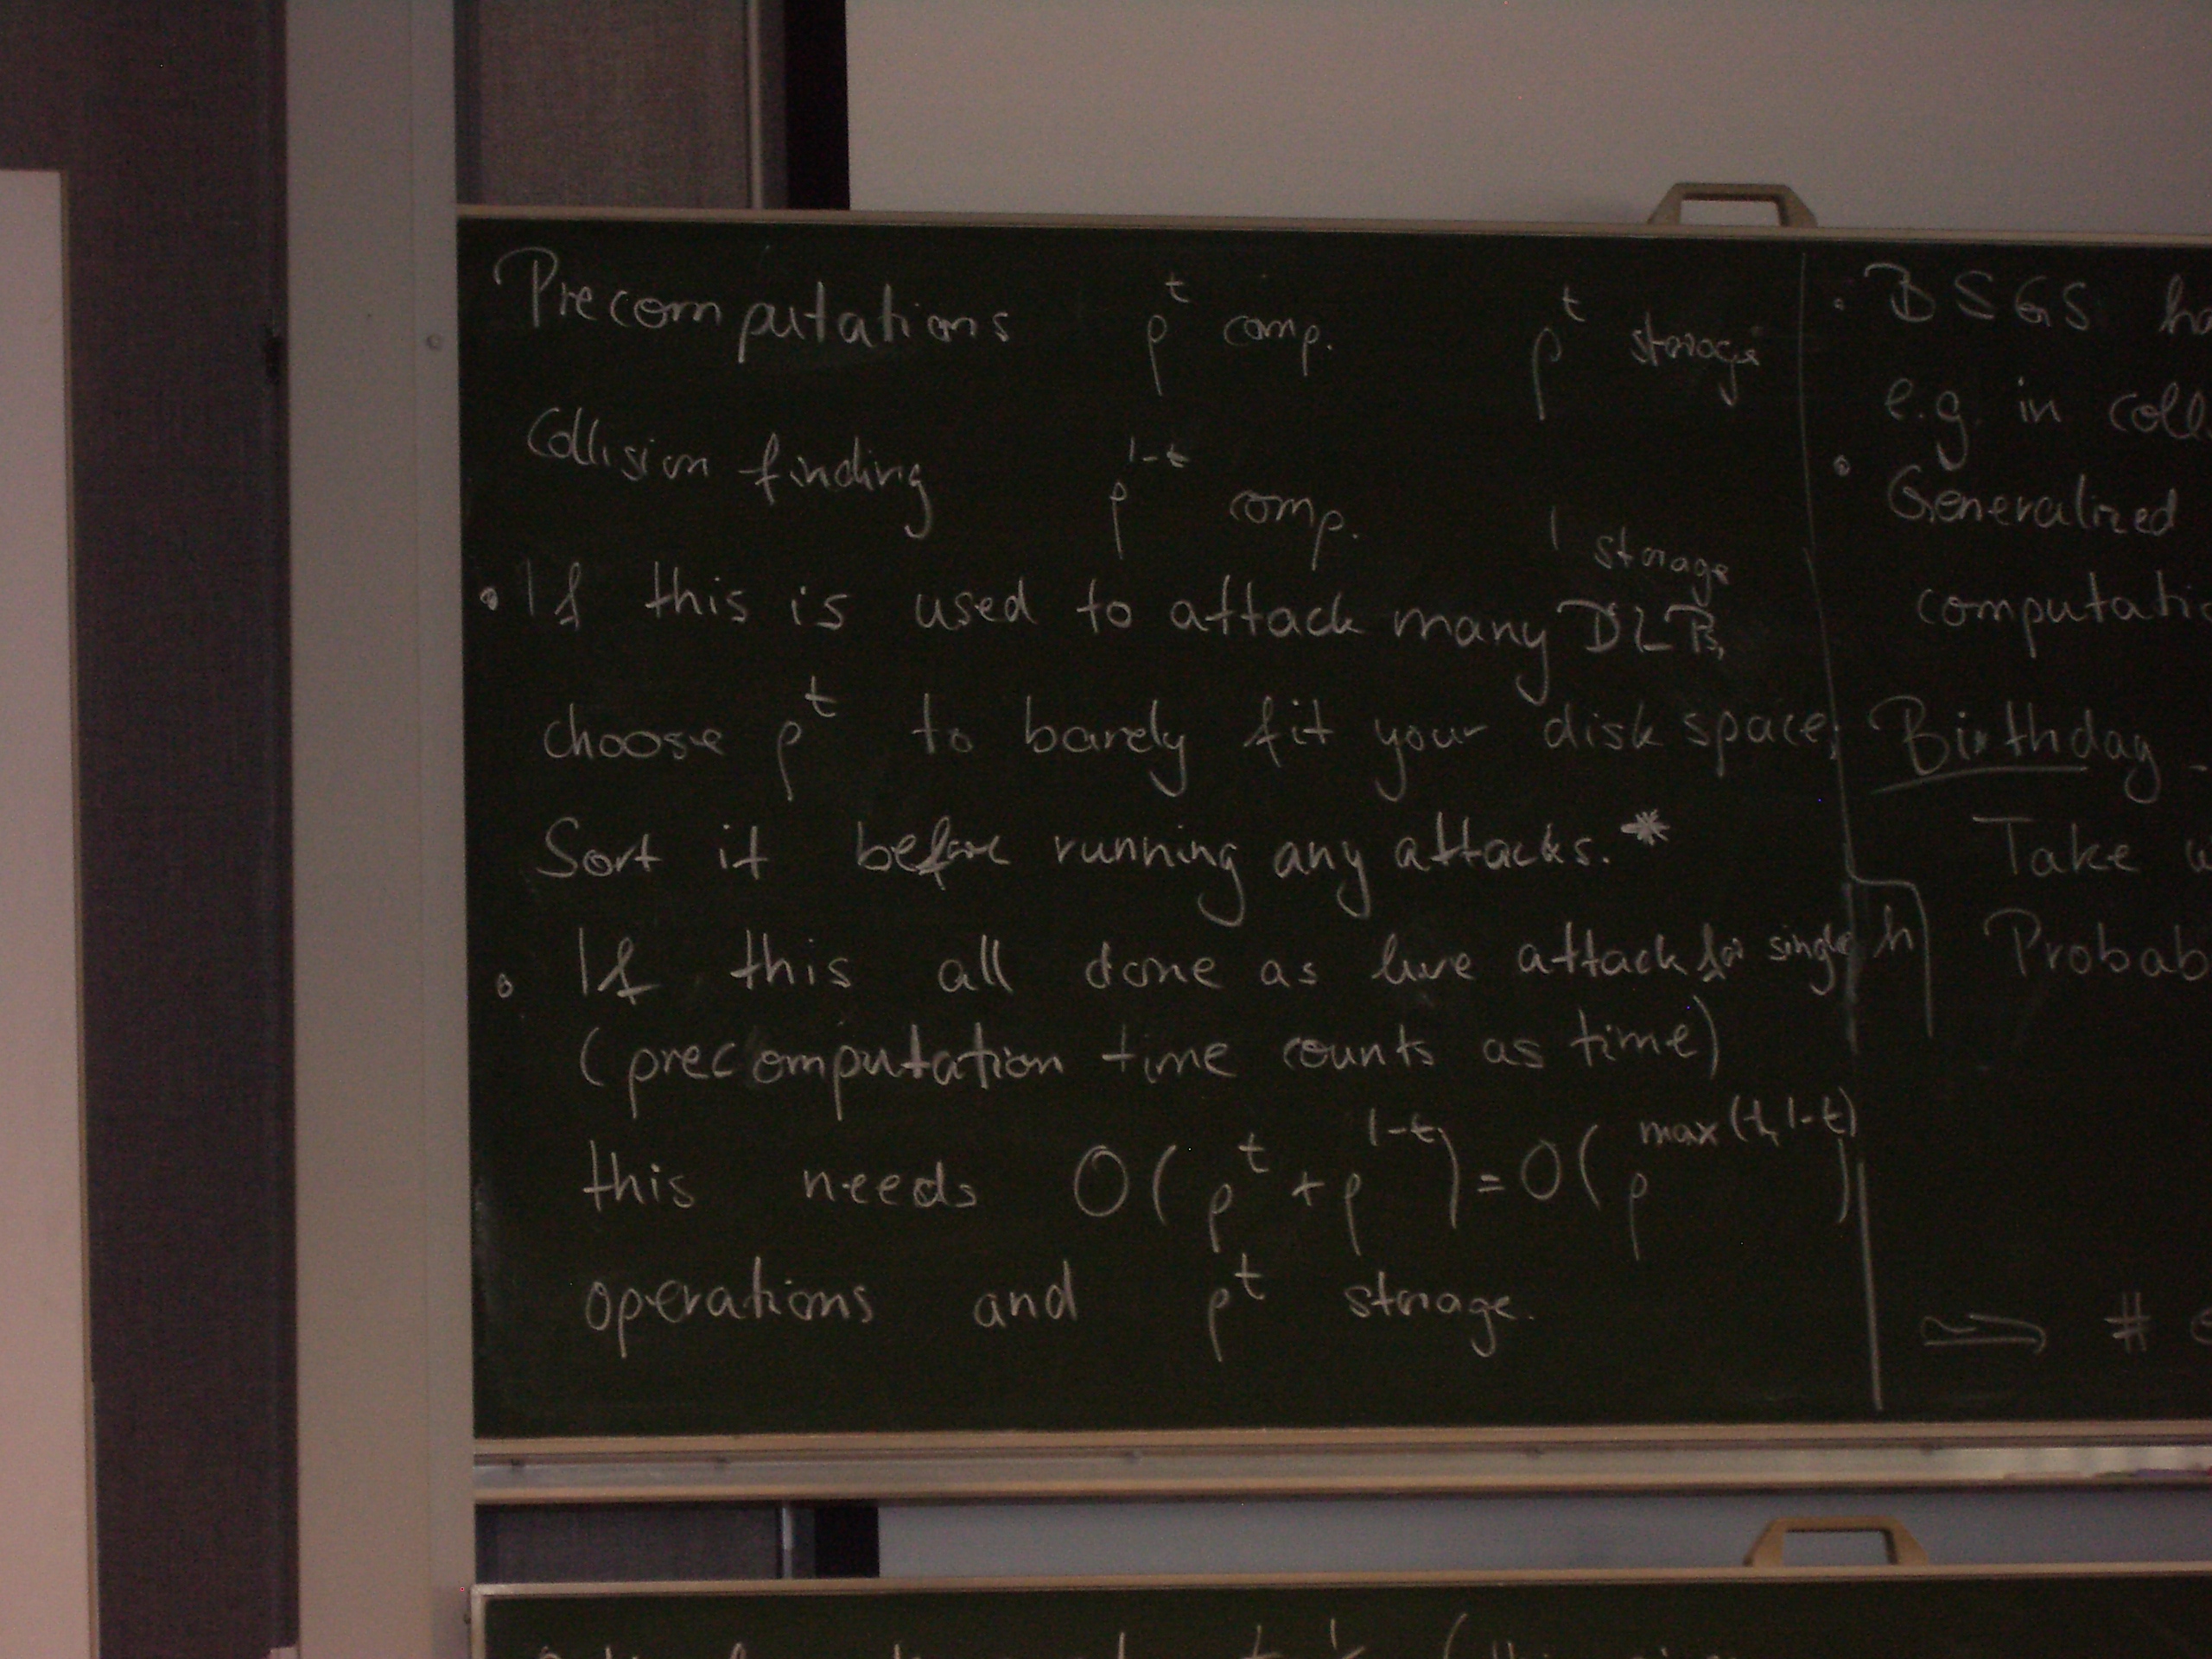 Precomputations p^t comp. p^t storage
Collision finding p^{1-t} comp. 1 storage
• If this is used to attack many DLPs,
choose p^t to barely fit your disk space;
Sort it before running any attacks. *
• If this all done as live attack for single h
(precomputation time counts as time)
this needs O(p^t + p^{1-t}) = O(p^{max(t,1-t)})
operations and p^t storage.
• BSGS ha
e.g. in coll
• Generalized
computatio
Birthday -
Take
Probab
⇒ #